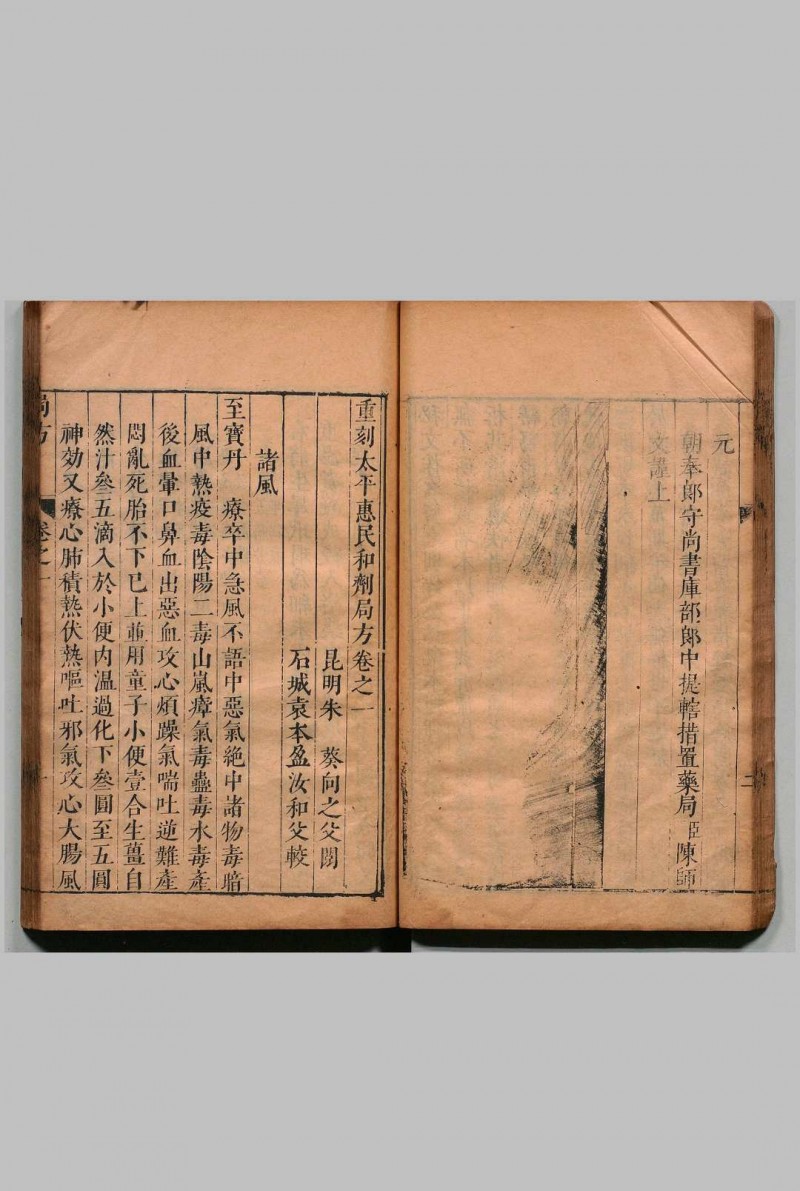 元
朝奉郎守尚書庫部郎中提轄措置藥局臣陳師
文謹上
二
重刻太平惠民和劑局方卷之一
昆明朱　葵向之父閱
石城袁本盈汝和父較
諸風
至寶丹　療卒中急風不語中惡氣絕中諸物毒暗
風中熱疫毒陰陽二毒山嵐瘴氣毒蠱毒水毒產
後血暈口鼻血出惡血攻心煩躁氣喘吐逆難產
悶亂死胎不下已上並用童子小便壹合生薑自
然汁叄五滴入於小便內溫過化下叄圓至五圓
神効又療心肺積熱伏熱嘔吐邪氣攻心大腸風
局方
卷之一
一